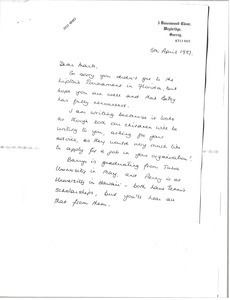 5 Beechwood Close,
Weybridge,
Surrey,
5th April 1987.
Dear Mark,
So sorry you didn't get to the
Lipton Tournament in Florida, but
hope you are well and that Betsy
has fully recovered.
I am writing because it looks
as though both our children will be
writing to you, asking for your
advice, as they would very much like
to apply for a job in your organisation!
Barry is graduating from Tulsa
University in May, and Penny is at
University in Hawaii - both have Tennis
Scholarships, but you'll hear all
that from them.